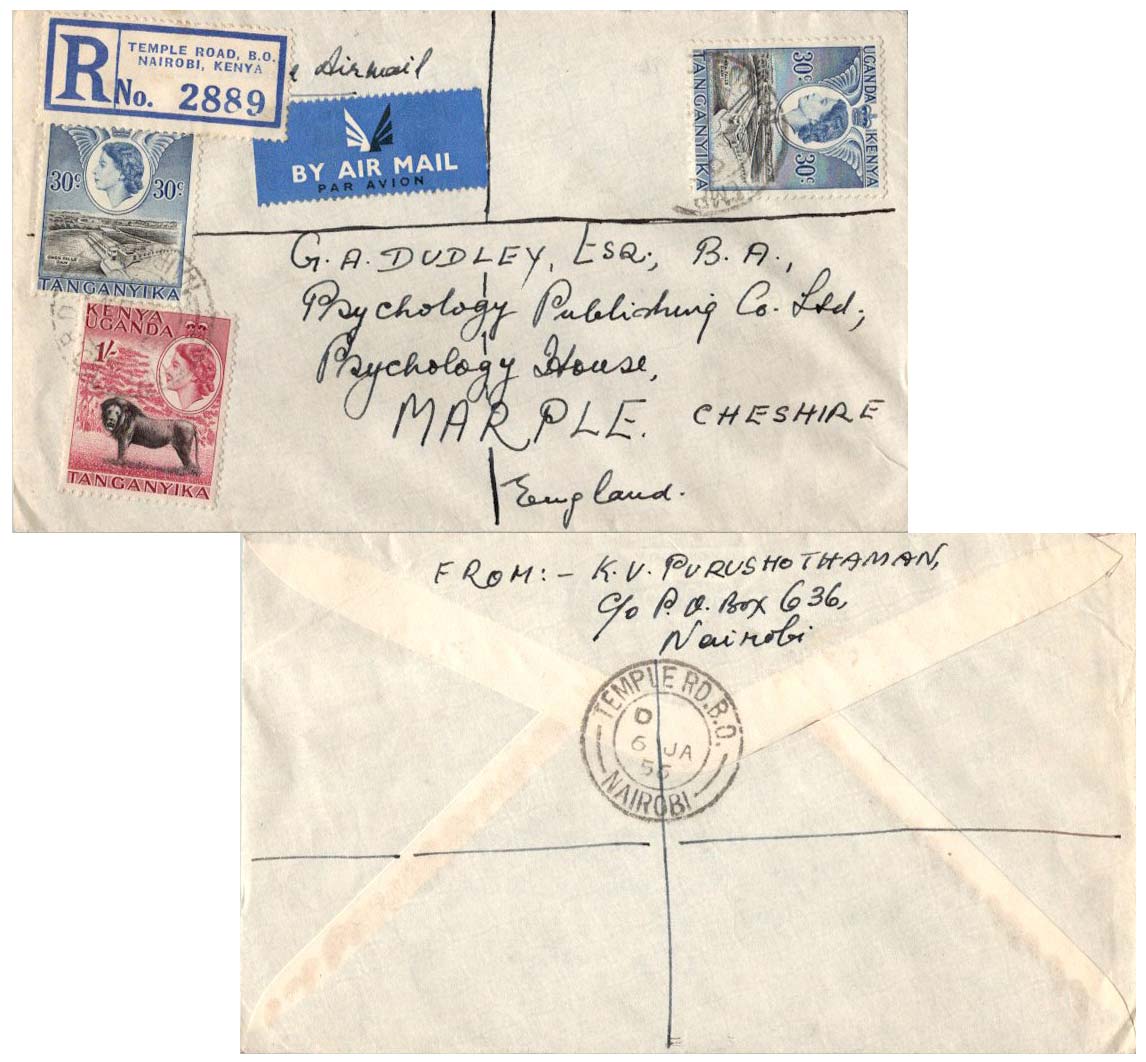 R
TEMPLE ROAD, B.O.
NAIROBI, KENYA
No. 2889
Airmail
BY AIR MAIL
PAR AVION
30c 30c
OWEN FALLS
DAM
TANGANYIKA
UGANDA KENYA
30c 30c
TANGANYIKA
KENYA
UGANDA
1/-
TANGANYIKA
G. A. DUDLEY, ESQ., B.A.,
Psychology Publishing Co. Ltd;
Psychology House,
MARPLE. CHESHIRE
England.
FROM:- K. V. PURUSHOTHAMAN,
c/o P. O. Box 636,
Nairobi
TEMPLE RD. B.O.
D
6 JA
56
NAIROBI